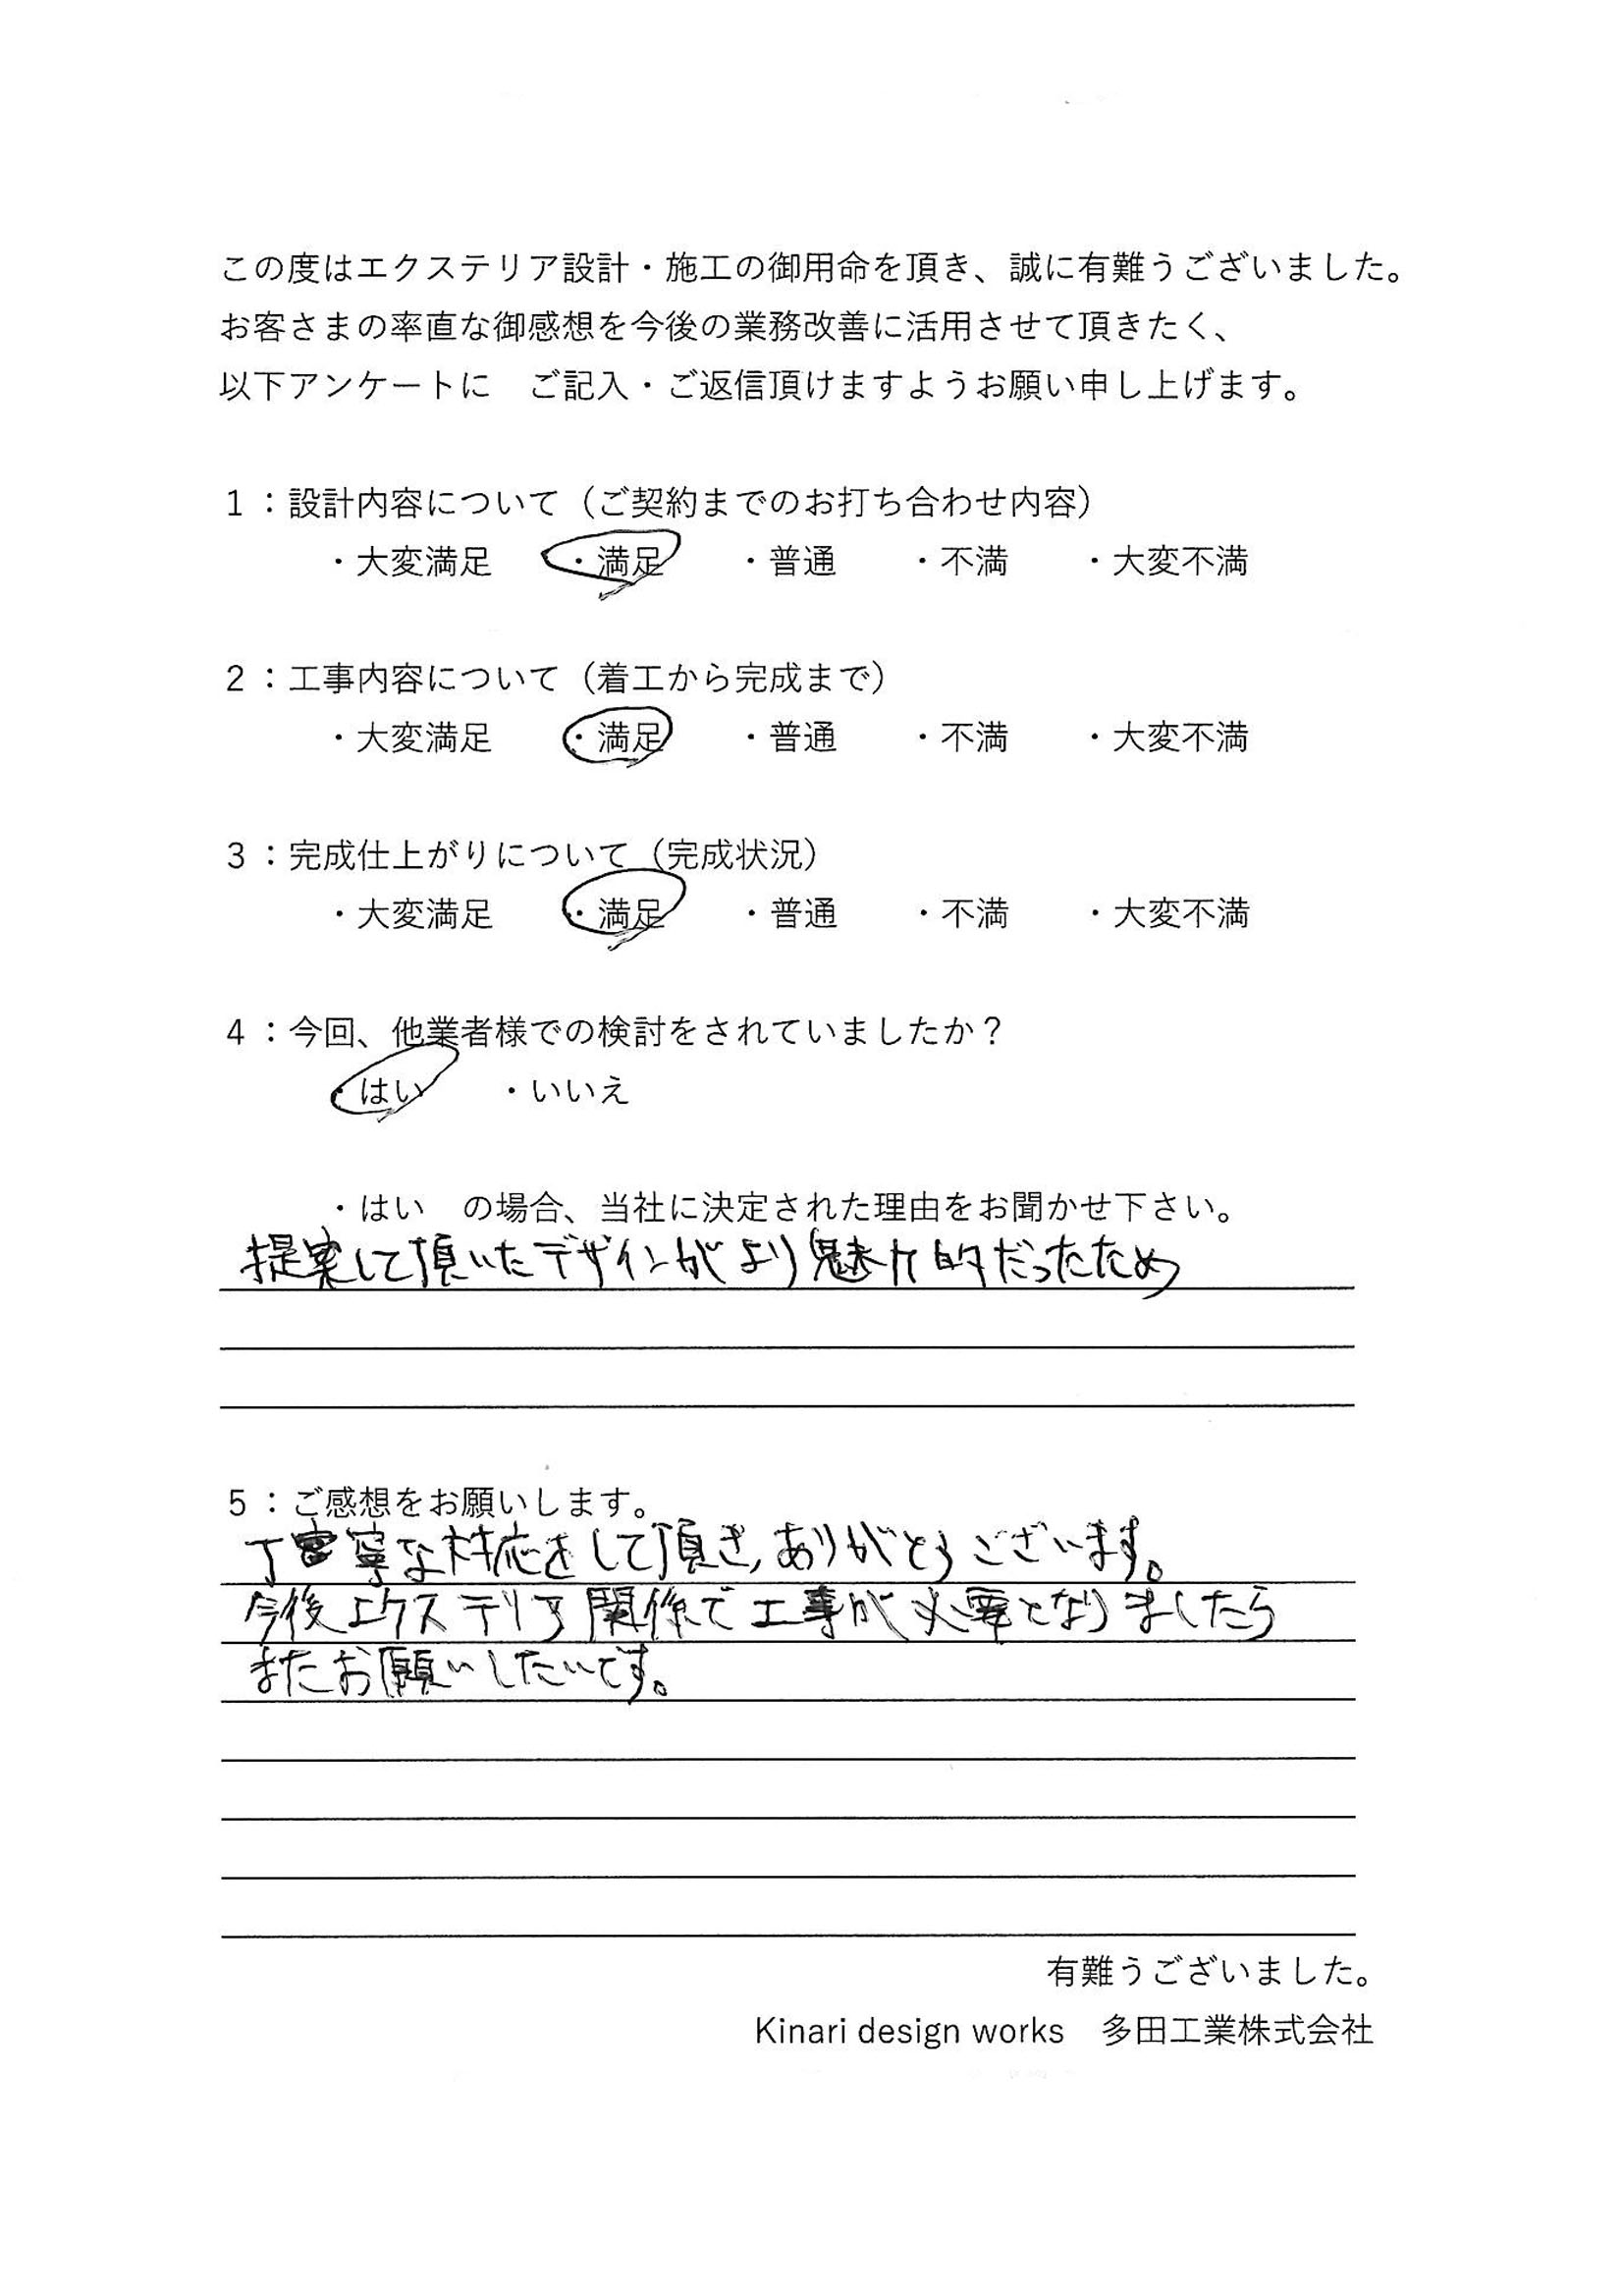 この度はエクステリア設計・施工の御用命を頂き、誠に有難うございました。
お客さまの率直な御感想を今後の業務改善に活用させて頂きたく、
以下アンケートに　ご記入・ご返信頂けますようお願い申し上げます。
1：設計内容について（ご契約までのお打ち合わせ内容）
・大変満足　・満足　・普通　・不満　・大変不満
2：工事内容について（着工から完成まで）
・大変満足　・満足　・普通　・不満　・大変不満
3：完成仕上がりについて（完成状況）
・大変満足　・満足　・普通　・不満　・大変不満
4：今回、他業者様での検討をされていましたか？
・はい　・いいえ
・はい　の場合、当社に決定された理由をお聞かせ下さい。
提案して頂いたデザインがより魅力的だったため
5：ご感想をお願いします。
丁寧な対応をして頂き、ありがとうございます。
今後エクステリア関係で工事が必要となりましたら
またお願いしたいです。
有難うございました。
Kinari design works　多田工業株式会社